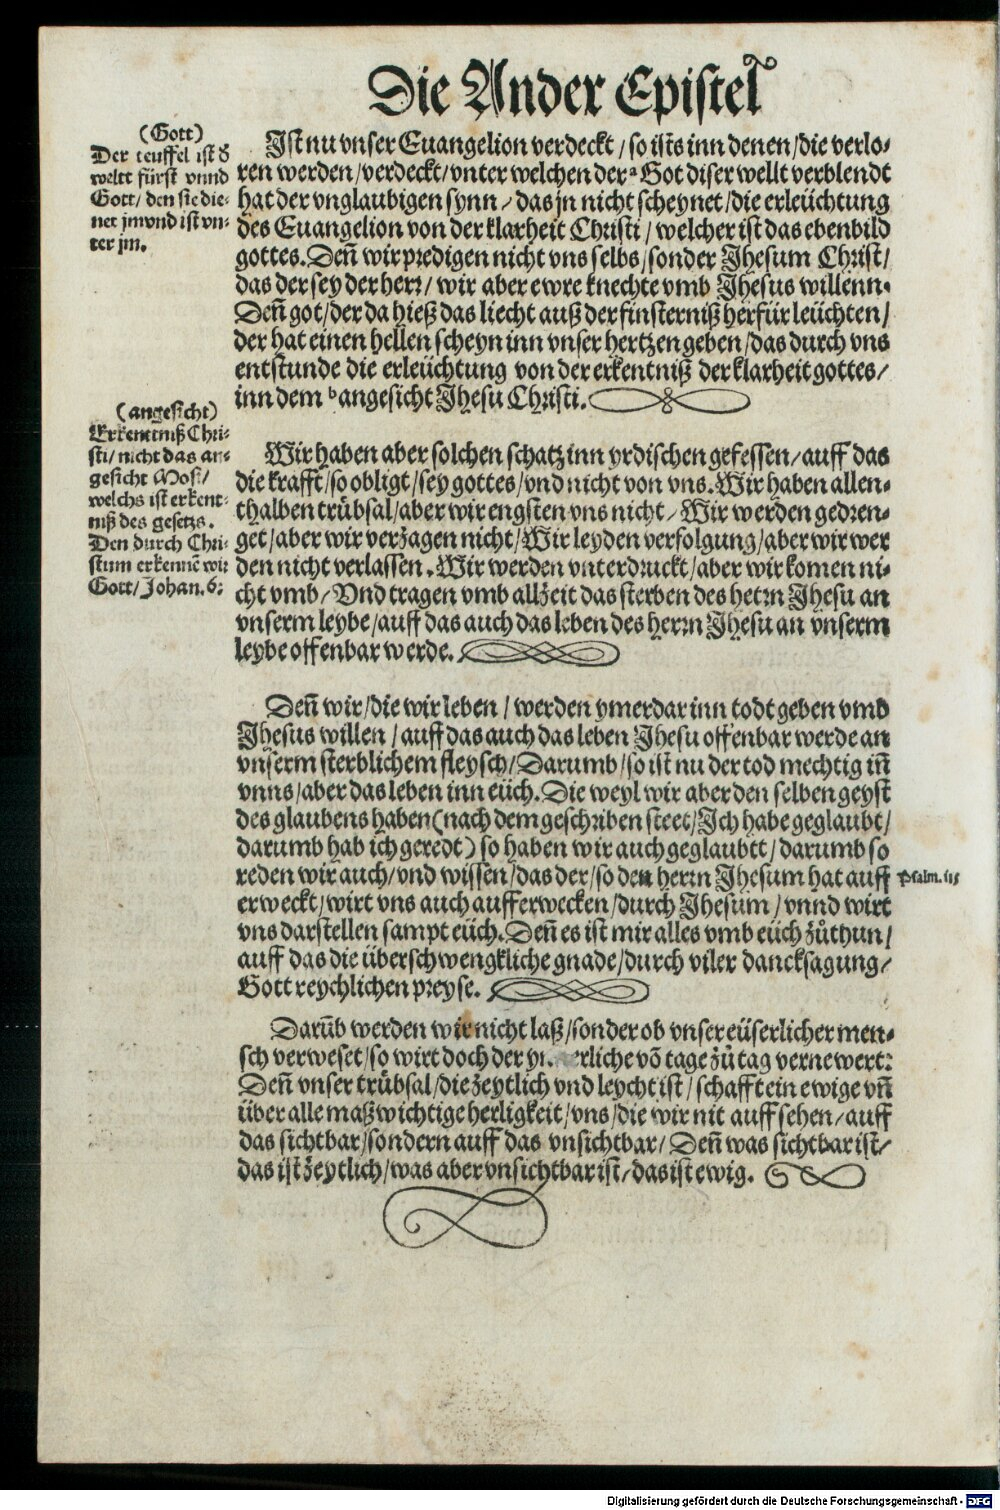 Die Ander Epistel
(Gott)
Der teuffel ist d̕
weltt fürst vnnd
Gott/ den sie die-
net jm vnd ist vn-
ter jm.
Ist nu vnser Euangelion verdeckt / so ists inn denen/die verlo-
ren werden/verdeckt/vnter welchen der ᵃ Got diser wellt verblendt
hat der vnglaubigen synn / das jn nicht scheynet/die erleüchtung
des Euangelion von der klarheit Christi / welcher ist das ebenbild
gottes. Deñ wir predigen nicht vns selbs/sonder Jhesum Christ/
das der sey der herr/ wir aber ewre knechte vmb Jhesus willenn.
Deñ got/der da hieß das liecht auß der finsterniß herfür leüchten/
der hat einen hellen scheyn inn vnser hertzen geben/das durch vns
entstunde die erleüchtung von der erkentniß der klarheit gottes/
inn dem ᵇ angesicht Jhesu Christi.
(angesicht)
Erkentniß Chri-
sti/ nicht das an-
gesicht Mosi/
welchs ist erkent-
niß des gesetzs.
Den durch Chri-
stum erkennē wir
Gott/ Johan. 6.
Wir haben aber solchen schatz inn yrdischen gefessen/auff das
die krafft/so obligt/sey gottes/vnd nicht von vns. Wir haben allen-
thalben trübsal/aber wir engsten vns nicht/ Wir werden gedren-
get/aber wir verzagen nicht/Wir leyden verfolgung/aber wir wer
den nicht verlassen. Wir werden vnterdruckt/aber wir komen ni-
cht vmb/ Vnd tragen vmb allzeit das sterben des herrn Jhesu an
vnserm leybe/auff das auch das leben des herrn Jhesu an vnserm
leybe offenbar werde.
Deñ wir/die wir leben / werden ymerdar inn todt geben vmb
Jhesus willen / auff das auch das leben Jhesu offenbar werde an
vnserm sterblichem fleysch/ Darumb/so ist nu der tod mechtig iñ
vnns/aber das leben inn eüch. Die weyl wir aber den selben geyst
des glaubens haben (nach dem geschriben steet/Ich habe geglaubt/
darumb hab ich geredt) so haben wir auch geglaubtt/darumb so
reden wir auch/vnd wissen/das der/so den herrn Jhesum hat auff
Psalm. iij
erweckt/wirt vns auch aufferwecken/durch Jhesum / vnnd wirt
vns darstellen sampt eüch. Deñ es ist mir alles vmb eüch zůthun/
auff das die überschwengkliche gnade/durch viler dancksagung/
Gott reychlichen preyse.
Darüb werden wir nicht laß/sonder ob vnser eüserlicher men-
sch verweset/so wirt doch der vō tage zů tag vernewert:
Deñ vnser trübsal/die zeytlich vnd leycht ist / schafft ein ewige vñ
über alle maß wichtige herligkeit/vns/die wir nit auff sehen/auff
das sichtbar/sondern auff das vnsichtbar/ Deñ was sichtbar ist/
das ist zeytlich/was aber vnsichtbar ist/das ist ewig.
Digitalisierung gefördert durch die Deutsche Forschungsgemeinschaft - DFG